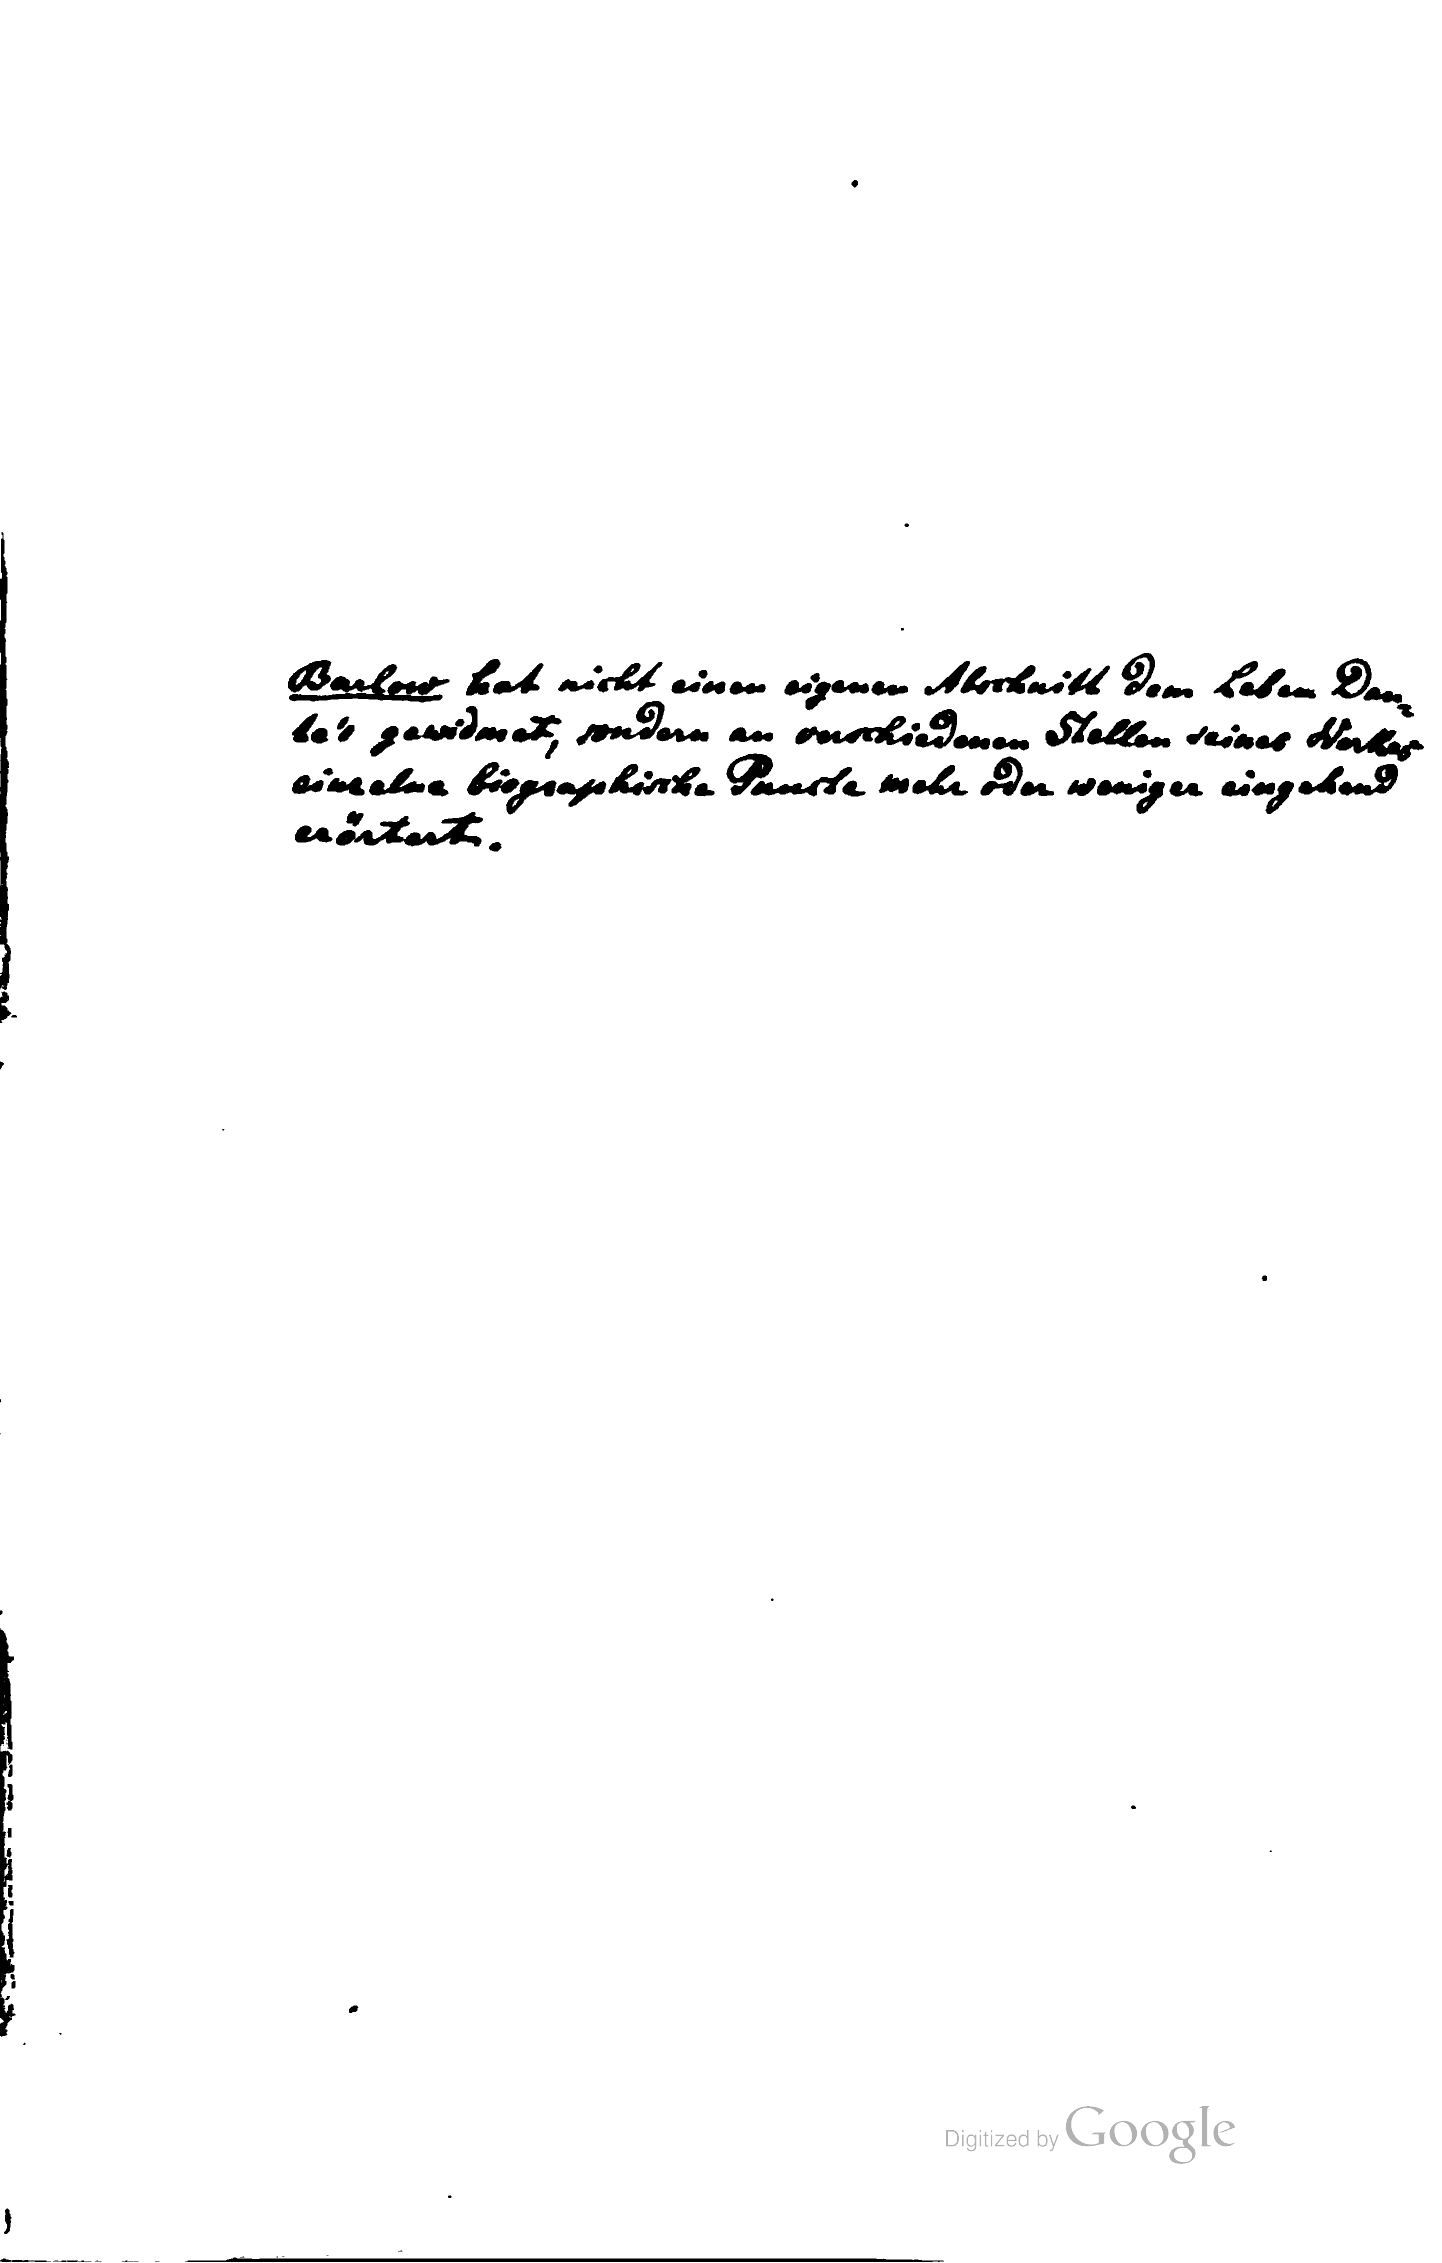 Barlow hat nicht einen eigenen Abschnitt dem Leben Dan-
te's gewidmet, sondern an verschiedenen Stellen seines Werkes
einzelne biographische Puncte mehr oder weniger eingehend
erörtert.
Digitized by Google